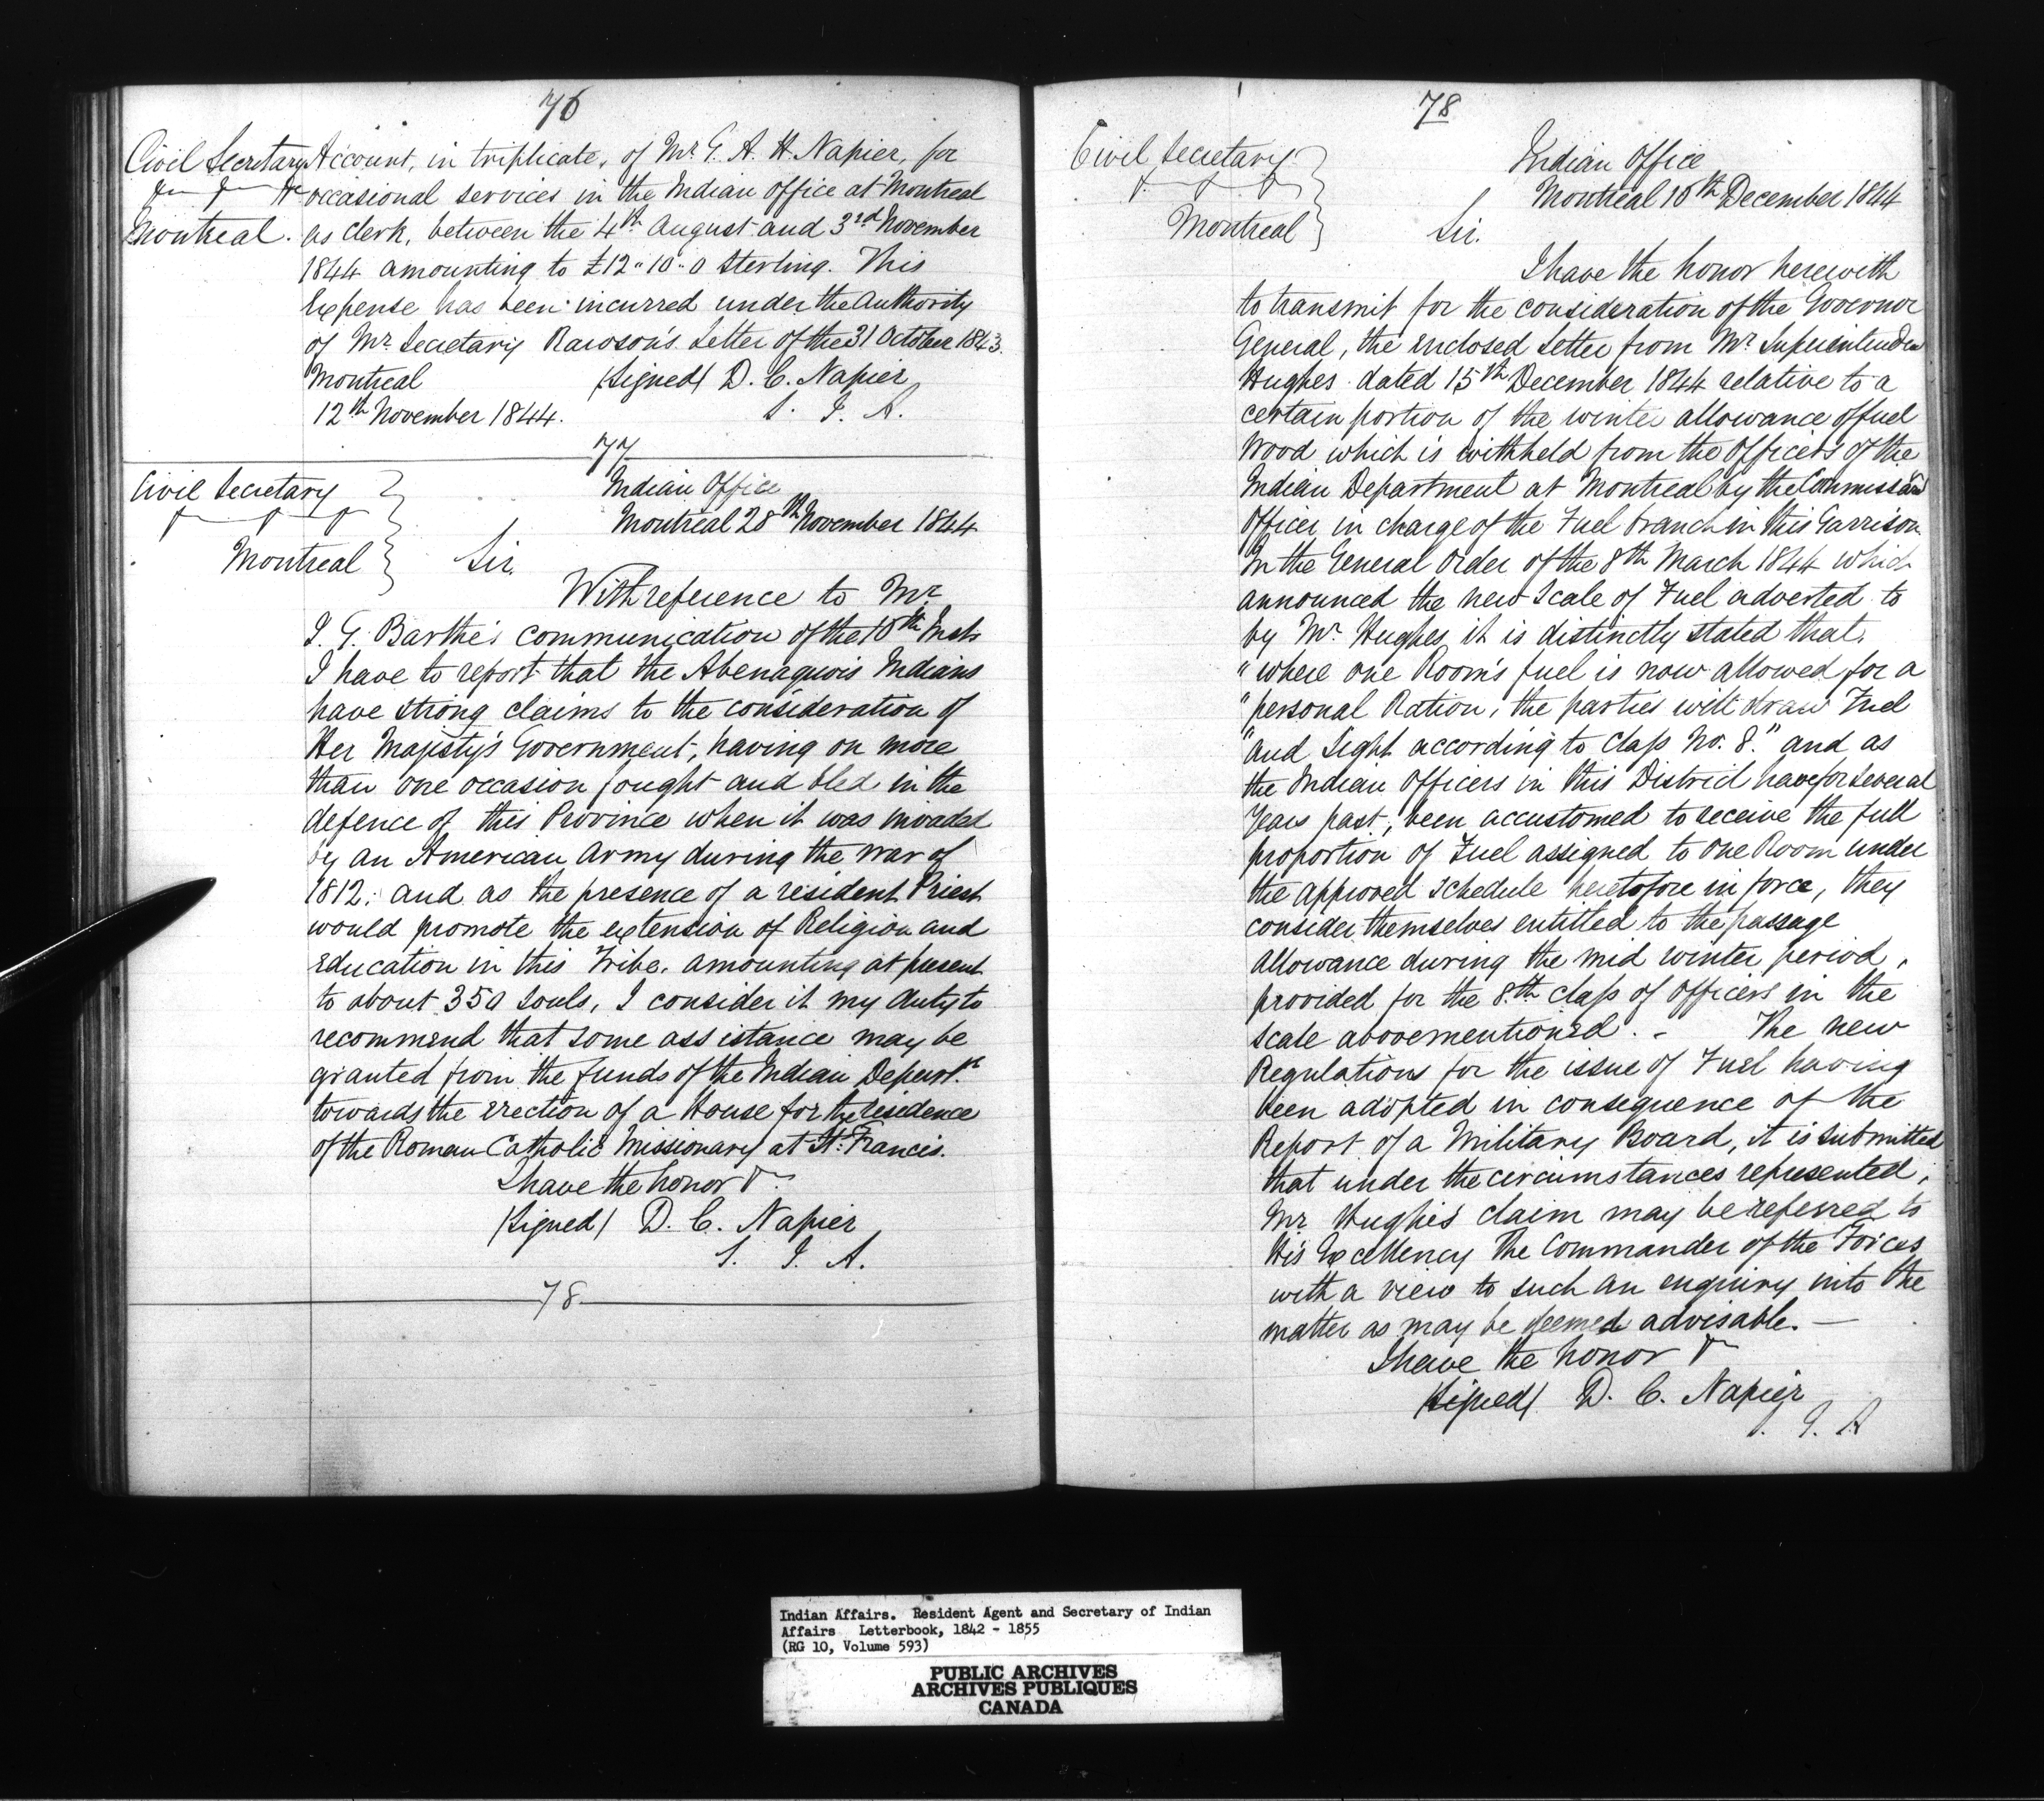 76
Civil Secretary
&c &c &c
Montreal.
Account, in triplicate, of Mr. G. A. H. Napier, for
occasional services in the Indian Office at Montreal
as Clerk, between the 4th August and 3rd November
1844 amounting to £12"10"0 Sterling. This
Expense has been incurred under the Authority
of Mr. Secretary Rawson's Letter of the 31 October 1843.
Montreal (Signed) D. C. Napier
12th November 1844. S. I. A.
77
Civil Secretary
Montreal
Indian Office
Montreal 28th November 1844
Sir.
With reference to Mr.
I. G. Barthe's communication of the 10th Inst
I have to report that the Abenaquois Indians
have strong claims to the consideration of
Her Majesty's Government, having on more
than one occasion fought and bled in the
defence of this Province when it was invaded
by an American Army during the war of
1812: and as the presence of a resident Priest
would promote the extension of Religion and
Education in this Tribe, amounting at present
to about 350 souls, I consider it my duty to
recommend that some assistance may be
granted from the funds of the Indian Depart.t
towards the erection of a House for the residence
of the Roman Catholic Missionary at St. Francis.
I have the honor &c
(Signed) D. C. Napier
S. I. A.
78
78
Civil Secretary
Montreal
Indian Office
Montreal 18th December 1844
Sir.
I have the honor herewith
to transmit for the consideration of the Governor
General, the enclosed Letter from Mr. Superintendent
Hughes dated 15th December 1844 relative to a
certain portion of the winter allowance of fuel
Wood which is withheld from the Officers of the
Indian Department at Montreal by the Commissariat
Officer in charge of the Fuel branch in this Garrison.
In the General Order of the 8th March 1844 which
announced the new Scale of Fuel adverted to
by Mr. Hughes it is distinctly stated that,
"where one Room's fuel is now allowed for a
"personal Ration, the parties will draw Fuel
"and Light according to Class No. 8." and as
the Indian Officers in this District have for several
Years past, been accustomed to receive the full
proportion of Fuel assigned to one Room under
the approved Schedule heretofore in force, they
consider themselves entitled to the passage
allowance during the mid winter period,
provided for the 8.th class of Officers in the
scale abovementioned. - The new
Regulations for the issue of Fuel having
been adopted in consequence of the
Report of a Military Board, it is submitted
that under the circumstances represented,
Mr Hughes' claim may be referred to
His Excellency The Commander of the Forces
with a view to such an enquiry into the
matter as may be deemed advisable. —
I have the honor &c
(Signed) D. C. Napier
I. A
Indian Affairs. Resident Agent and Secretary of Indian
Affairs Letterbook, 1842 - 1855
(RG 10, Volume 593)
PUBLIC ARCHIVES
ARCHIVES PUBLIQUES
CANADA